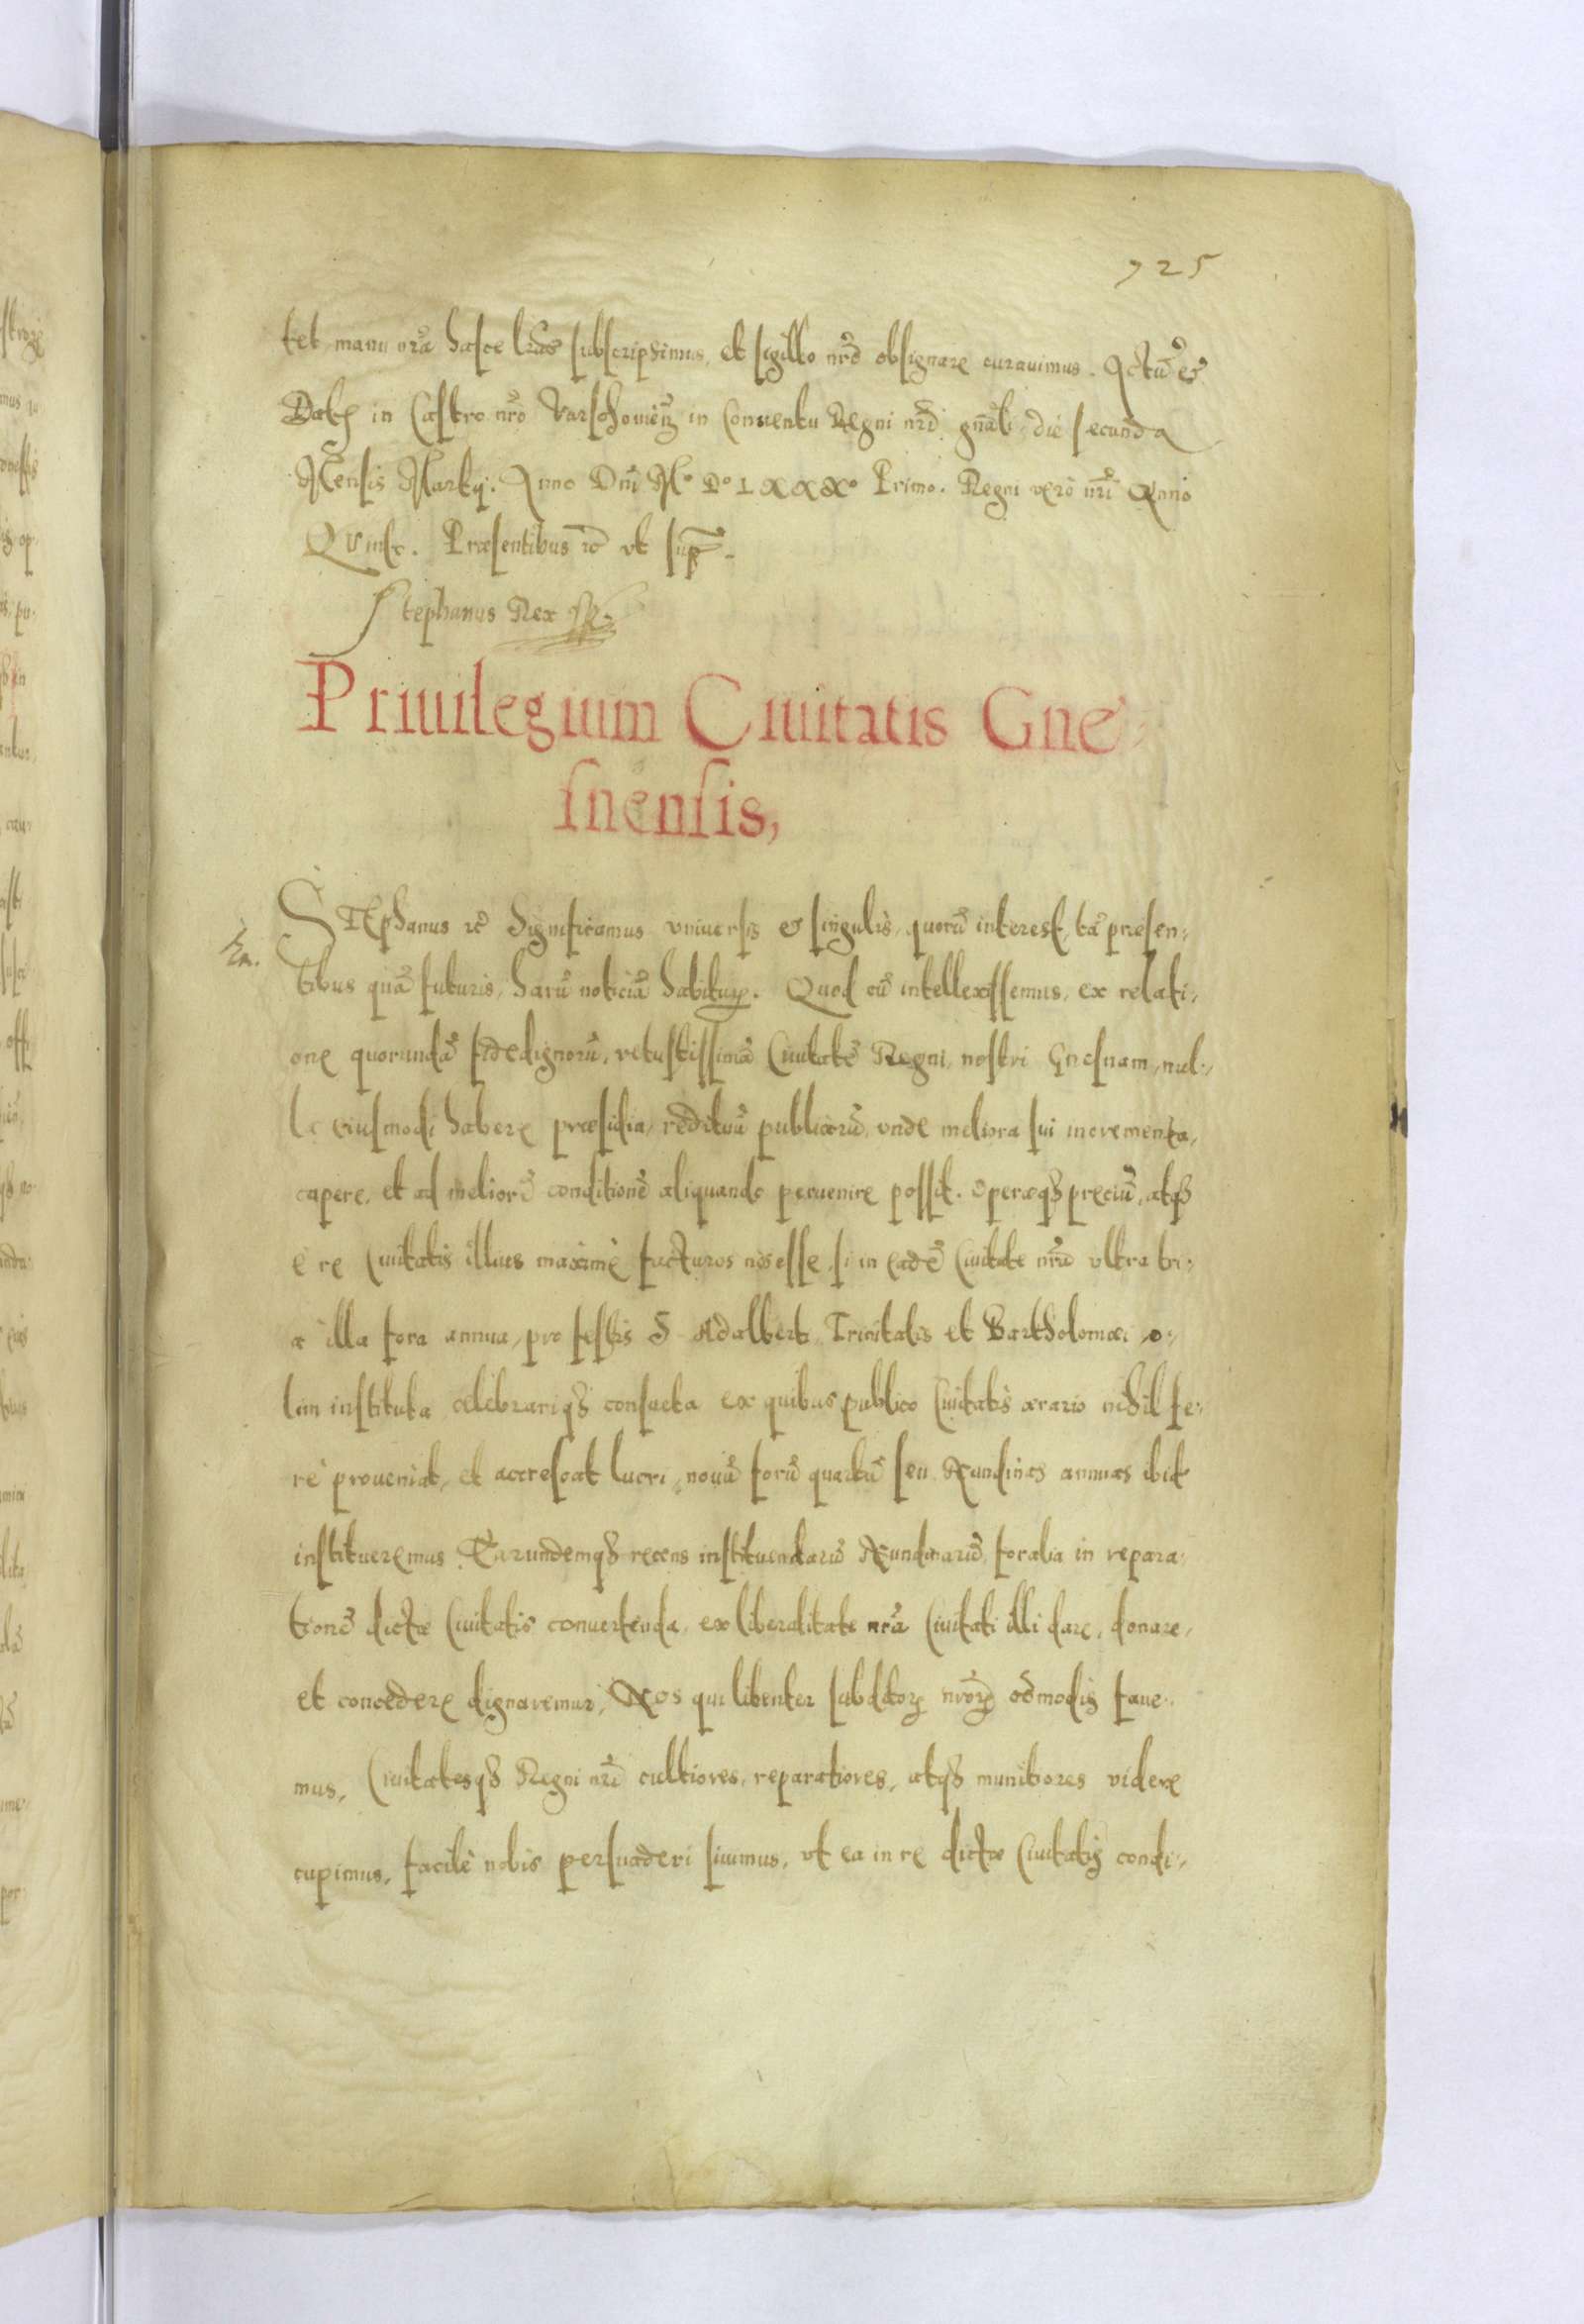 725
tet manu nrã hasce lrãs subscripsimus, et sigillo nrõ obsignare curauimus. Actũ et
Datũ in Castro nrõ Varschouieñ in Conuentu Regni nrĩ gnãli die secunda
Mensis Martij. Anno Dnĩ Mº Dº LXXXº Primo. Regni verò nrĩ Anno
Quinto. Præsentibus ĩc vt sup̃.
Stephanus Rex
Priuilegium Ciuitatis Gne
snensis,
STEphanus ĩc Significamus vniuersis et singulis, quorũ interest, tã præsen,
tibus quã futuris, harũ noticiã habiturꝫ. Quod cũ intellexissemus, ex relati,
one quorundã fidedignorũ, vetustissimã Ciuitatẽ Regni nostri Gnesnam, nul,
la eiusmodi habere præsidia, redituũ publicorũ, vnde meliora sui incrementa,
capere, et ad meliorẽ conditionẽ aliquando peruenire possit. Operæqꝫ preciũ, atqꝫ
è re Ciuitatis illius maximè facturos nos esse, si in eadẽ Ciuitate nrã vltra tri,
a illa fora annua, pro festis S Adalberti Trinitatis et Bartholomæi o,
lim instituta celebrariqꝫ consueta ex quibus publico Ciuitatis ærario nihil fe,
rè proueniat, et accrescat lucri, nouũ forũ quartũ seu Nundinas annuas ibid
institueremus Earundemqꝫ recens instituendarũ Nundinarũ, foralia in repara
tionẽ dictæ Ciuitatis conuertenda, ex liberalitate nrã Ciuitati illi dare, donare,
et concedere dignaremur, Nos qui libenter subditorꝫ nrorꝫ cõmodis faue,
mus, Ciuitatesqꝫ Regni nrĩ cultiores, reparatiores, atqꝫ munitiores videre
cupimus, facilè nobis persuaderi siuimus, vt ea in re dictæ Ciuitatis condi,